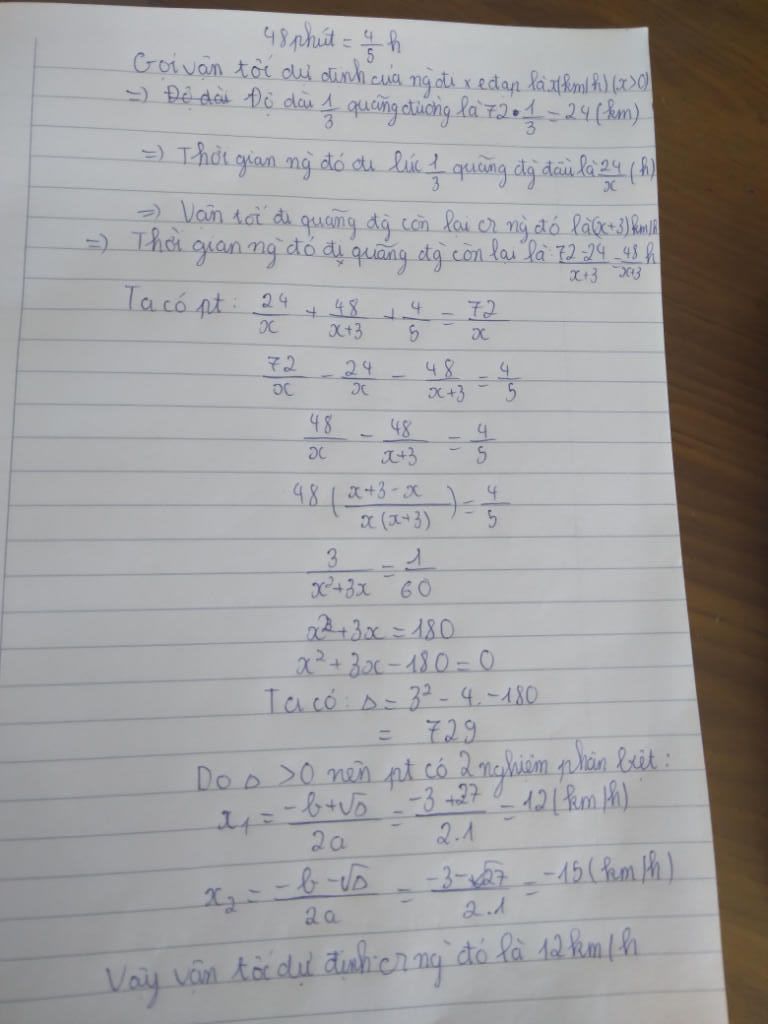 48 phút = 4/5 h
Gọi vận tốc dự định của ng đi xe đạp là x (km/h) (x>0)
=> Độ dài Độ dài 1/3 quãng đường là 72 . 1/3 = 24 (km)
=> Thời gian ng đó đi lúc 1/3 quãng đg đầu là 24/x (h)
=> Vận tốc đi quãng đg còn lại cr ng đó là (x+3) km/h
=> Thời gian ng đó đi quãng đg còn lại là: 72-24/x+3 = 48/x+3 h
Ta có pt: 24/x + 48/x+3 + 4/5 = 72/x
72/x - 24/x - 48/x+3 = 4/5
48/x - 48/x+3 = 4/5
48 ( x+3-x / x(x+3) ) = 4/5
3/x²+3x = 1/60
x²+3x = 180
x²+3x-180 = 0
Ta có: Δ = 3² - 4.-180
= 729
Do Δ >0 nên pt có 2 nghiệm phân biệt:
x₁ = -b+√Δ / 2a = -3+27 / 2.1 = 12 (km/h)
x₂ = -b-√Δ / 2a = -3-27 / 2.1 = -15 (km/h)
Vậy vận tốc dự định cr ng đó là 12 km/h